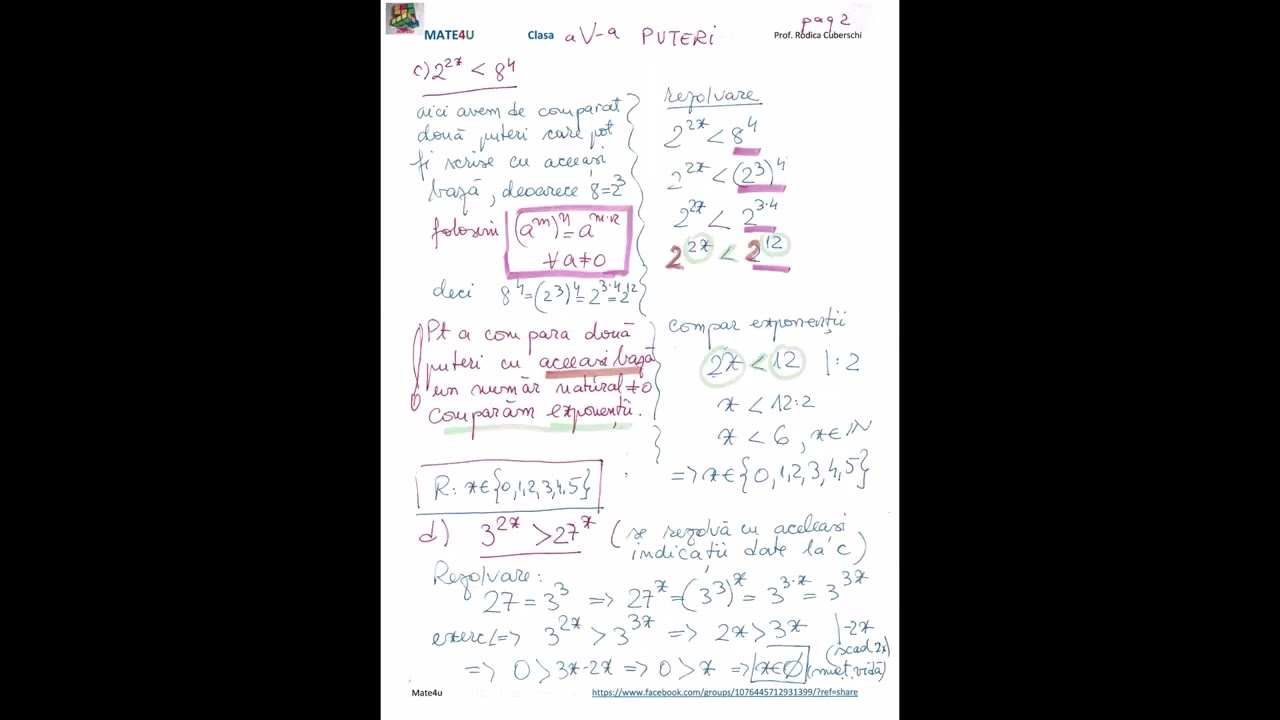 pag 2
MATE4U Clasa a V-a PUTERI Prof. Rodica Cuberschi
c) 2^{2x} < 8^4
aici avem de comparat
două puteri care pot
fi scrise cu aceeași
bază, deoarece 8=2^3
folosim (a^m)^n = a^{m·n}
∀ a≠0
deci 8^4=(2^3)^4=2^{3·4}=2^{12}
Pt a compara două
puteri cu aceeași bază
un număr natural ≠0
comparăm exponenții.
R: x∈{0,1,2,3,4,5}
rezolvare
2^{2x} < 8^4
2^{2x} < (2^3)^4
2^{2x} < 2^{3·4}
2^{2x} < 2^{12}
compar exponenții
2x < 12 |:2
x < 12:2
x < 6, x∈ℕ
=> x∈{0,1,2,3,4,5}
d) 3^{2x} > 27^x (se rezolvă cu aceleași
indicații date la c)
Rezolvare:
27 = 3^3 => 27^x = (3^3)^x = 3^{3·x} = 3^{3x}
exerc(=> 3^{2x} > 3^{3x} => 2x > 3x |-2x
(scad 2x)
=> 0 > 3x-2x => 0 > x => x∈∅ (mulț. vidă)
Mate4u https://www.facebook.com/groups/1076445712931399/?ref=share